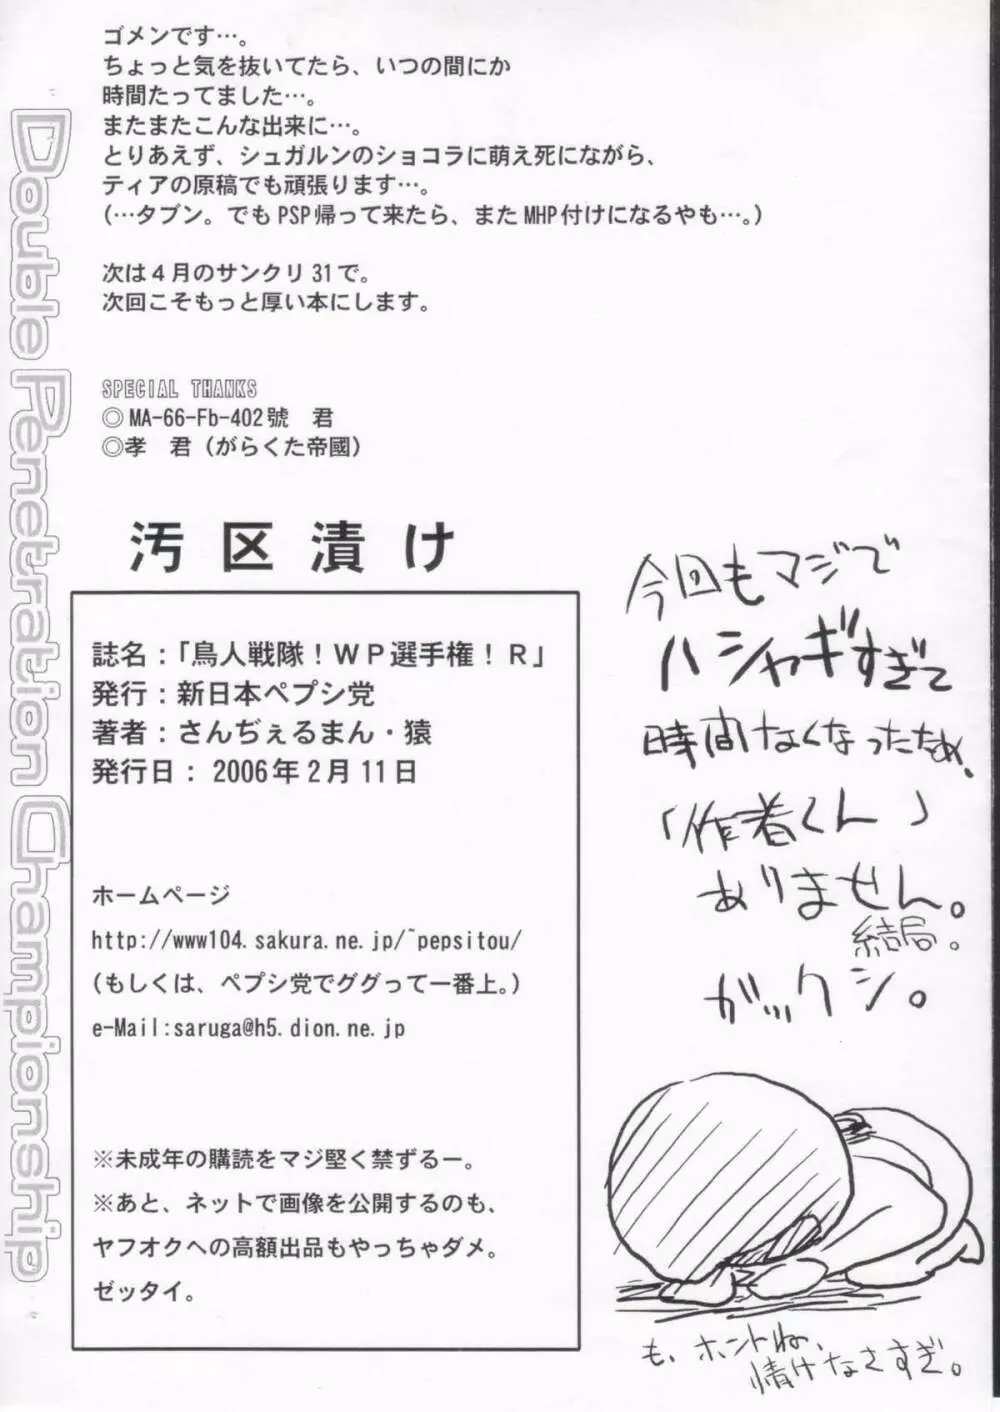 ゴメンです…。
ちょっと気を抜いてたら、いつの間にか
時間たってました…。
またまたこんな出来に…。
とりあえず、シュガルンのショコラに萌え死にながら、
ティアの原稿でも頑張ります…。
(…タブン。でもPSP帰って来たら、またMHP付けになるやも…。)
次は4月のサンクリ31で。
次回こそもっと厚い本にします。
SPECIAL THANKS
◎MA-66-Fb-402號　君
◎孝　君（がらくた帝國）
汚区漬け
誌名：「鳥人戦隊！ＷＰ選手権！Ｒ」
発行：新日本ペプシ党
著者：さんぢぇるまん・猿
発行日：2006年2月11日
ホームページ
http://www104.sakura.ne.jp/~pepsitou/
(もしくは、ペプシ党でググって一番上。)
e-Mail:saruga@h5.dion.ne.jp
※未成年の購読をマジ堅く禁ずるー。
※あと、ネットで画像を公開するのも、
ヤフオクへの高額出品もやっちゃダメ。
ゼッタイ。
今回もマジで
ハシャギすぎて
時間なくなったため、
「作者くん」
ありません。
結局。
ガックシ。
も、ホントね、
情けなさすぎ。
Double Penetration Championship